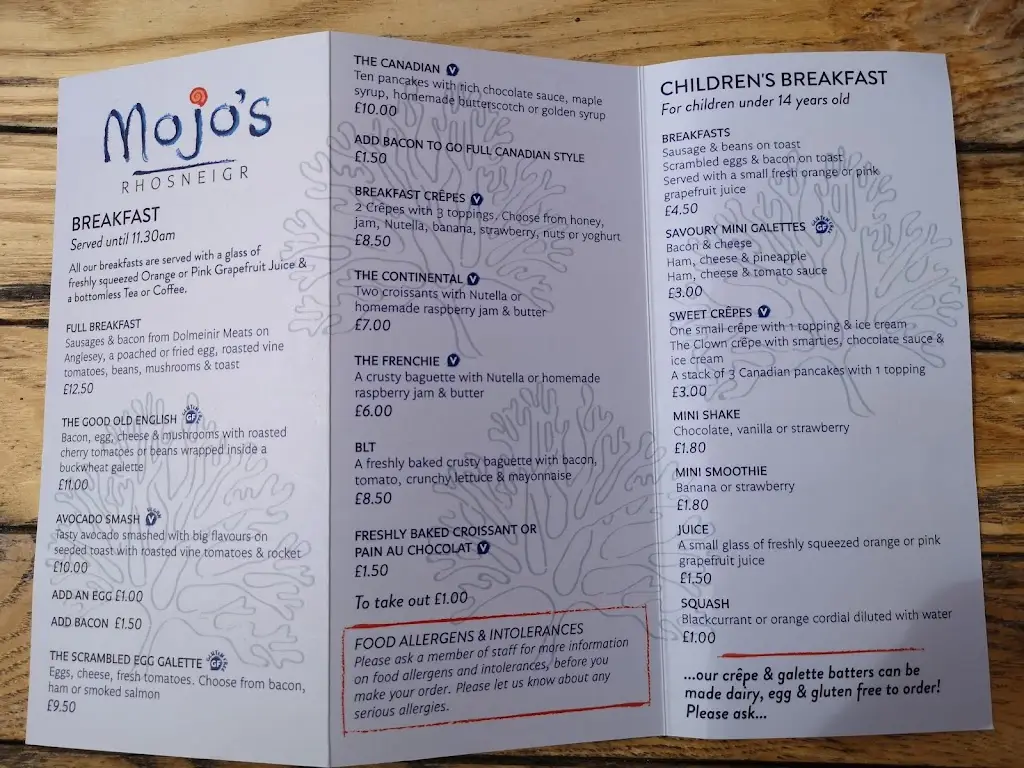 Mojo's
RHOSNEIGR
BREAKFAST
Served until 11.30am
All our breakfasts are served with a glass of
freshly squeezed Orange or Pink Grapefruit Juice &
a bottomless Tea or Coffee.
FULL BREAKFAST
Sausages & bacon from Dolmeinir Meats on
Anglesey, a poached or fried egg, roasted vine
tomatoes, beans, mushrooms & toast
£12.50
THE GOOD OLD ENGLISH GF
Bacon, egg, cheese & mushrooms with roasted
cherry tomatoes or beans wrapped inside a
buckwheat galette
£11.00
AVOCADO SMASH V
Tasty avocado smashed with big flavours on
seeded toast with roasted vine tomatoes & rocket
£10.00
ADD AN EGG £1.00
ADD BACON £1.50
THE SCRAMBLED EGG GALETTE GF
Eggs, cheese, fresh tomatoes. Choose from bacon,
ham or smoked salmon
£9.50
THE CANADIAN V
Ten pancakes with rich chocolate sauce, maple
syrup, homemade butterscotch or golden syrup
£10.00
ADD BACON TO GO FULL CANADIAN STYLE
£1.50
BREAKFAST CRÊPES V
2 Crêpes with 3 toppings. Choose from honey,
jam, Nutella, banana, strawberry, nuts or yoghurt
£8.50
THE CONTINENTAL V
Two croissants with Nutella or
homemade raspberry jam & butter
£7.00
THE FRENCHIE V
A crusty baguette with Nutella or homemade
raspberry jam & butter
£6.00
BLT
A freshly baked crusty baguette with bacon,
tomato, crunchy lettuce & mayonnaise
£8.50
FRESHLY BAKED CROISSANT OR
PAIN AU CHOCOLAT V
£1.50
To take out £1.00
FOOD ALLERGENS & INTOLERANCES
Please ask a member of staff for more information
on food allergens and intolerances, before you
make your order. Please let us know about any
serious allergies.
CHILDREN'S BREAKFAST
For children under 14 years old
BREAKFASTS
Sausage & beans on toast
Scrambled eggs & bacon on toast
Served with a small fresh orange or pink
grapefruit juice
£4.50
SAVOURY MINI GALETTES GF
Bacon & cheese
Ham, cheese & pineapple
Ham, cheese & tomato sauce
£3.00
SWEET CRÊPES V
One small crêpe with 1 topping & ice cream
The Clown crêpe with smarties, chocolate sauce &
ice cream
A stack of 3 Canadian pancakes with 1 topping
£3.00
MINI SHAKE
Chocolate, vanilla or strawberry
£1.80
MINI SMOOTHIE
Banana or strawberry
£1.80
JUICE
A small glass of freshly squeezed orange or pink
grapefruit juice
£1.50
SQUASH
Blackcurrant or orange cordial diluted with water
£1.00
...our crêpe & galette batters can be
made dairy, egg & gluten free to order!
Please ask...